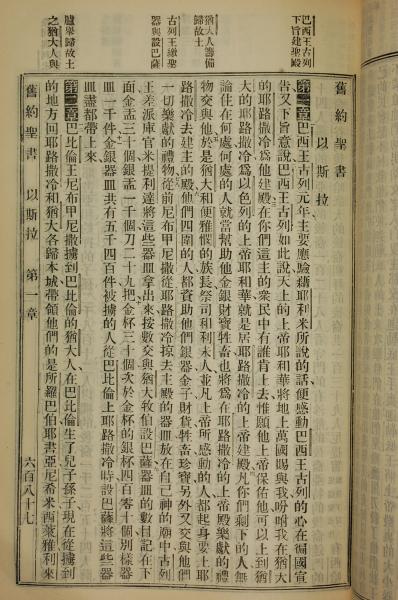 舊約聖書
以斯拉
巴西王古列下旨建聖殿
猶大人籌備歸故土
古列王繳聖器與設巴薩
臚舉歸故土之猶大人與
第一章巴西王古列元年主要應驗藉耶利米所說的話便感動巴西王古列的心在徧國宣
告又下旨意說巴西王古列如此說天上的上帝耶和華將地上萬國賜與我吩咐我在猶大
的耶路撒冷爲他建殿在你們這主的衆民中有誰肯上去惟願他上帝保佑他可以上到猶
大的耶路撒冷爲以色列的上帝耶和華就是居耶路撒冷的上帝建殿凡你們剩下的人無
論住在何處何處的人就當幫助他金銀財寶牲畜也將爲在耶路撒冷的上帝殿樂獻的禮
物交與他於是猶大和便雅憫的族長祭司和利未人並凡上帝所感動的人都起身要上耶
路撒冷去建主的殿他們四圍的人都資助他們銀器金子財貨牲畜珍寶另外又交與他們
一切樂獻的禮物從前尼布甲尼撒從耶路撒冷掠去主殿的器皿放在自己神的廟中古列
王差派庫官米提利達將這些器皿拿出來按數交與猶大牧伯設巴薩器皿的數目記在下
面金盂三十個銀盂一千個刀二十九把金杯三十個次於金杯的銀杯四百零十個別樣器
皿一千件金銀器皿共有五千四百件被擄的人從巴比倫上耶路撒冷時設巴薩將這些器
皿盡都帶上來
第二章巴比倫王尼布甲尼撒擄到巴比倫的猶大人在巴比倫生了兒子孫子現在從擄到
的地方回耶路撒冷和猶大各歸本城帶領他們的是所羅巴伯耶書亞尼希米西萊雅利來
舊約聖書 以斯拉 第一章 六百八十七